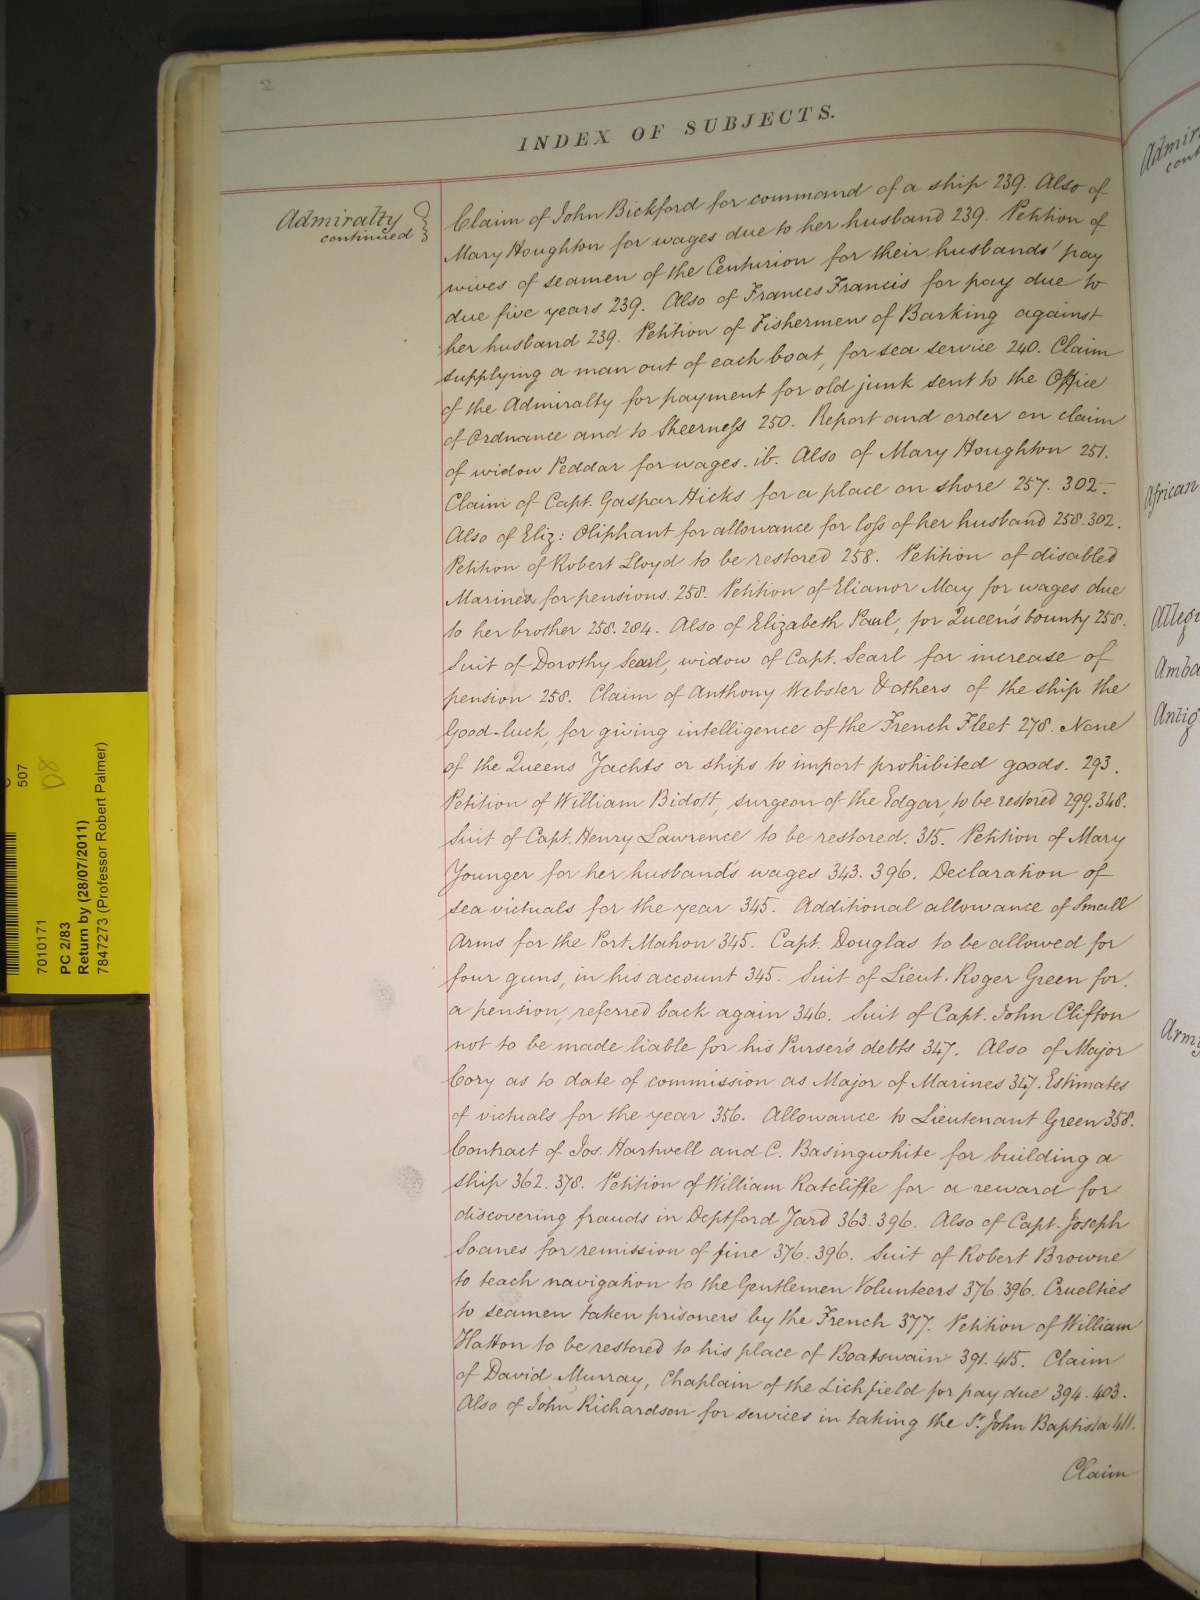 2
INDEX OF SUBJECTS.
Admiralty
continued
Claim of John Bickford for command of a ship 239. Also of
Mary Houghton for wages due to her husband 239. Petition of
wives of seamen of the Centurion for their husbands' pay
due five years 239. Also of Frances Francis for pay due to
her husband 239. Petition of Fishermen of Barking against
supplying a man out of each boat, for sea service 240. Claim
of the Admiralty for payment for old junk sent to the Office
of Ordnance and to Sheerness 250. Report and order on claim
of widow Peddar for wages. ib. Also of Mary Houghton 251.
Claim of Capt. Gaspar Hicks for a place on shore 257. 302.
Also of Eliz: Oliphant for allowance for loss of her husband 258. 302.
Petition of Robert Lloyd to be restored 258. Petition of disabled
Marines for pensions. 258. Petition of Elianor May for wages due
to her brother 258. 284. Also of Elizabeth Paul, for Queen's bounty 258.
Suit of Dorothy Searl, widow of Capt. Searl for increase of
pension 258. Claim of Anthony Webster & others of the ship the
Good-luck, for giving intelligence of the French Fleet 278. None
of the Queens Yachts or ships to import prohibited goods. 293.
Petition of William Bidott, surgeon of the Edgar, to be restored 299. 348.
Suit of Capt. Henry Lawrence to be restored. 315. Petition of Mary
Younger for her husband's wages 343. 396. Declaration of
sea victuals for the year 345. Additional allowance of Small
Arms for the Port Mahon 345. Capt. Douglas to be allowed for
four guns, in his account 345. Suit of Lieut. Roger Green for
a pension, referred back again 346. Suit of Capt. John Clifton
not to be made liable for his Purser's debts 347. Also of Major
Cory as to date of commission as Major of Marines 347. Estimates
of victuals for the year 356. Allowance to Lieutenant Green 358.
Contract of Jos. Hartwell and C. Basingwhite for building a
ship 362. 378. Petition of William Ratcliffe for a reward for
discovering frauds in Deptford Yard 363. 396. Also of Capt. Joseph
Soanes for remission of fine 376. 396. Suit of Robert Browne
to teach navigation to the Gentlemen Volunteers 376. 396. Cruelties
to seamen taken prisoners by the French 377. Petition of William
Hatton to be restored to his place of Boatswain 391. 415. Claim
of David Murray, Chaplain of the Lichfield for pay due 394. 403.
Also of John Richardson for services in taking the St. John Baptista 411.
Claim
African
Army
507
D8
7010171
PC 2/83
Return by (28/07/2011)
7847273 (Professor Robert Palmer)